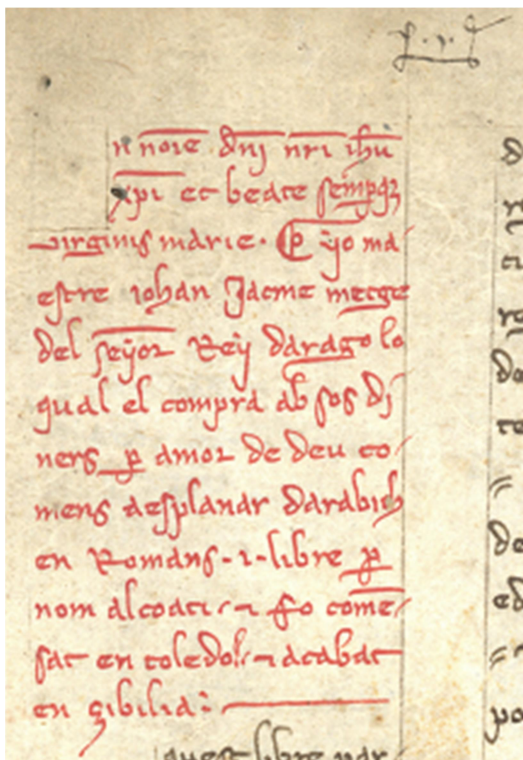 n noie dnj nri ihu
xpi et beate sempqz
virginis marie. ¶ yo ma
estre iohan Jacme metge
del seyor Rey darago lo
qual el compra ab sos dj
ners p amor de deu co
mens aesplanar darabich
en Romans .i. libre p
nom alcoati ⁊ fo come
sat en toledo ⁊ acabat
en sibilia:
quest libre par